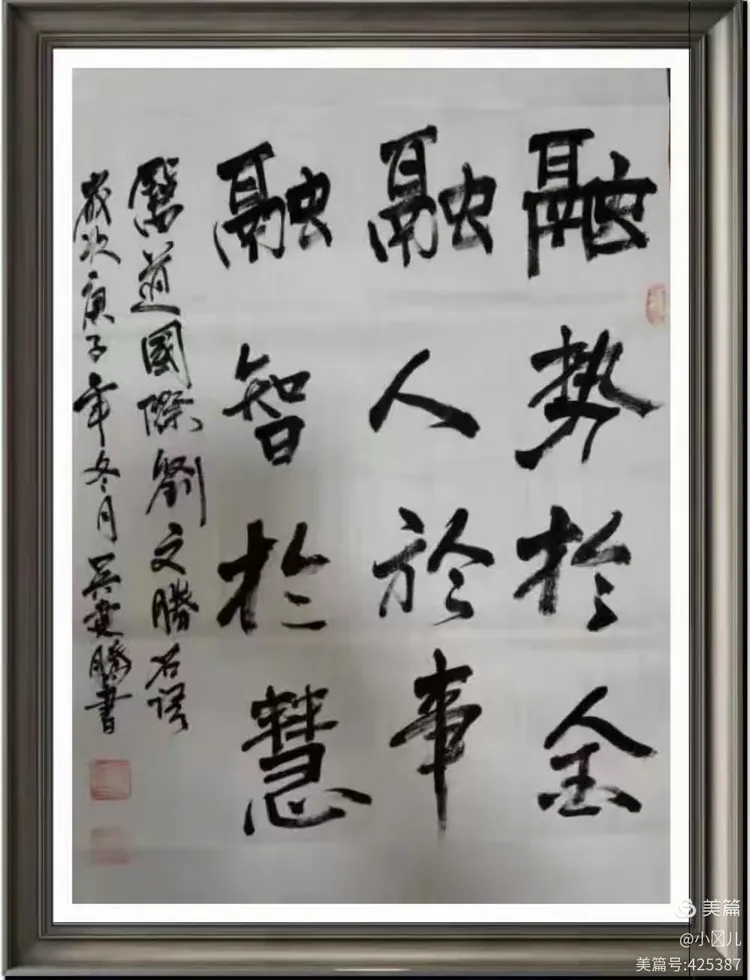 融势於金
融人於事
融智於慧
医道國際劉文勝名譯
歲次庚子年冬月吴建勝書
美篇
@小儿
美篇号:425387